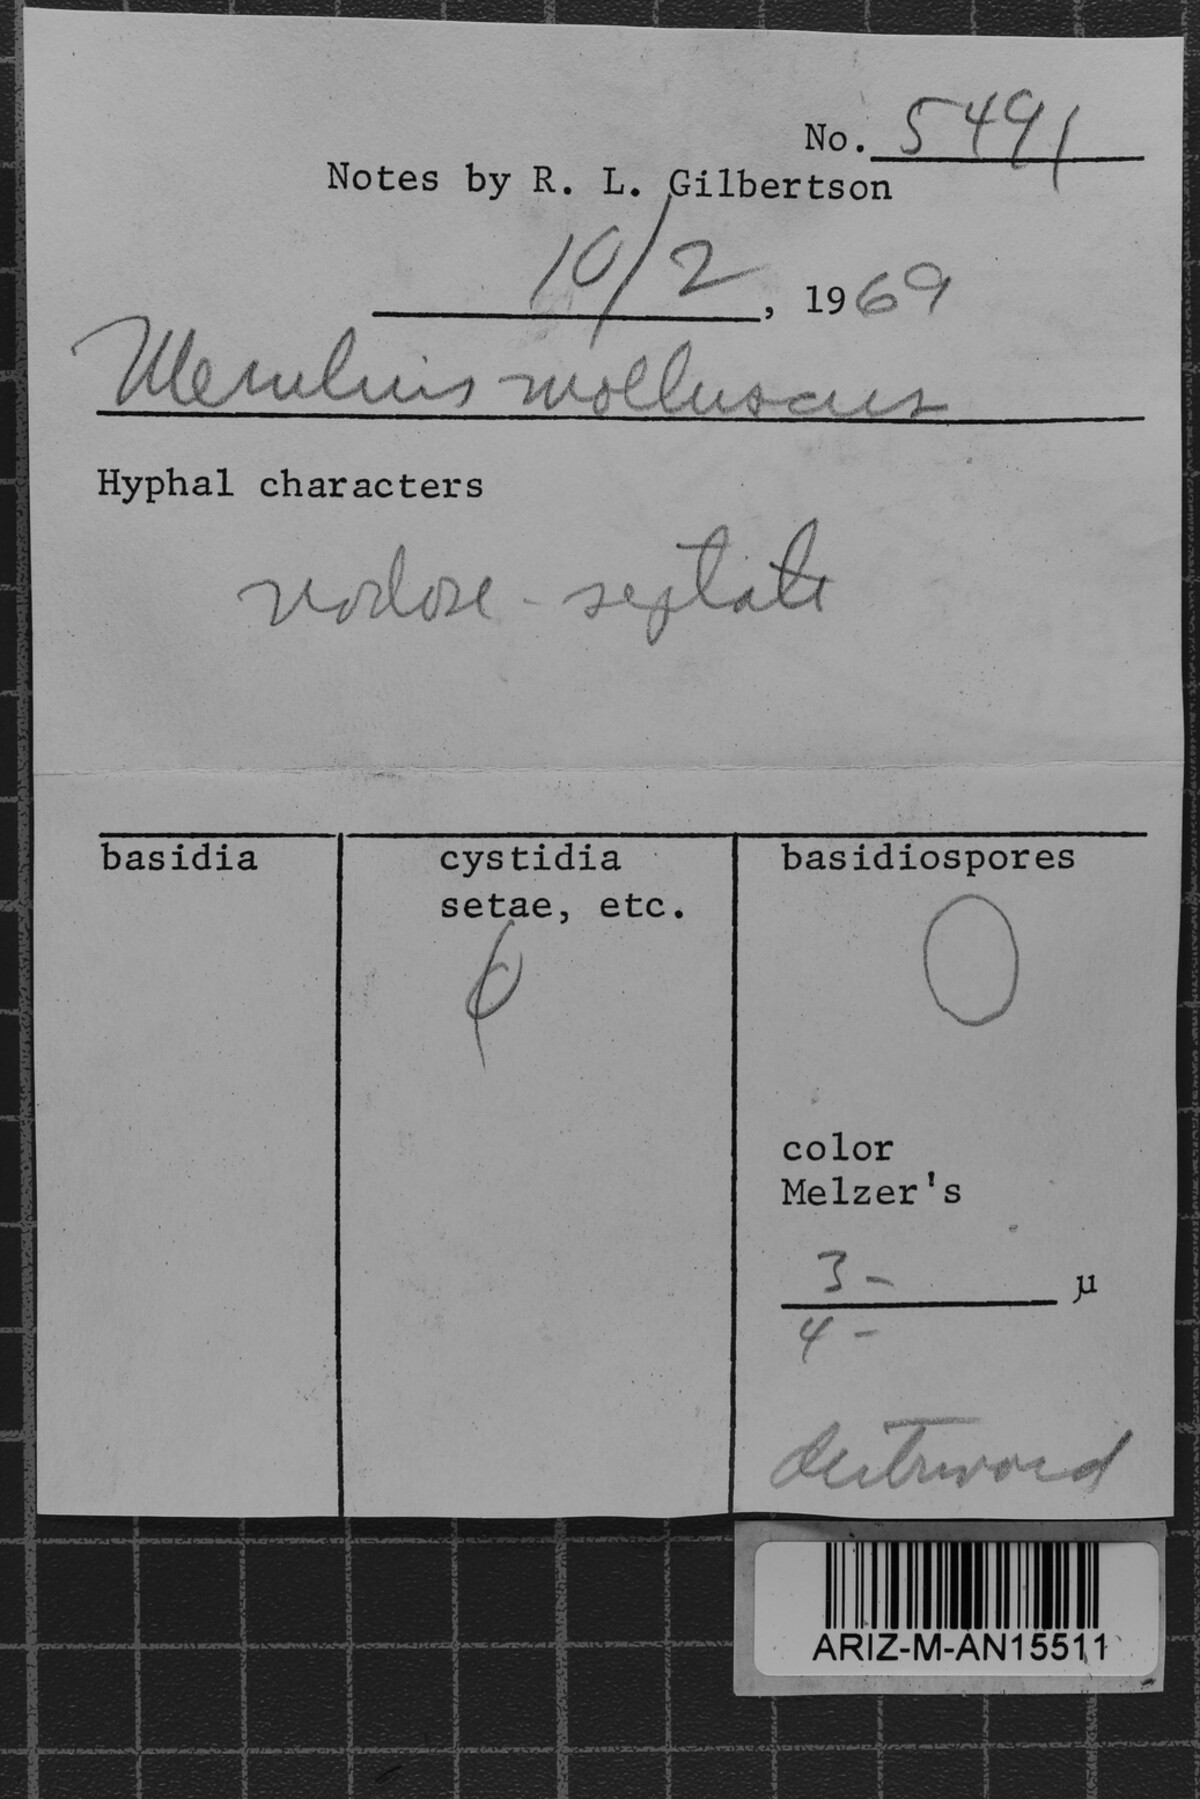 No. 5491
Notes by R. L. Gilbertson
10/2, 1969
Merulius molluscus
Hyphal characters
nodose-septate
basidia
cystidia
setae, etc.
basidiospores
color
Melzer's
3 - µ
4 -
ARIZ-M-AN15511